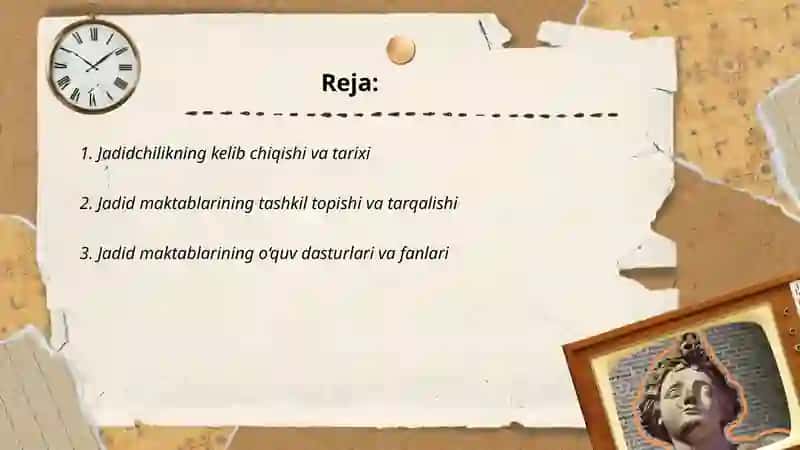 Reja:
1. Jadidchilikning kelib chiqishi va tarixi
2. Jadid maktablarining tashkil topishi va tarqalishi
3. Jadid maktablarining o‘quv dasturlari va fanlari